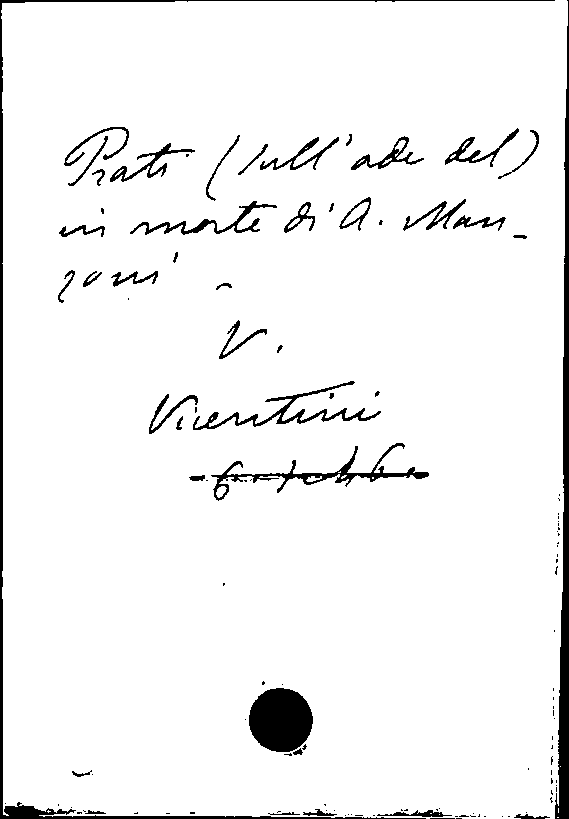 Prati (sull'ode del)
in morte di A. Man-
zoni -
V.
Vicentini